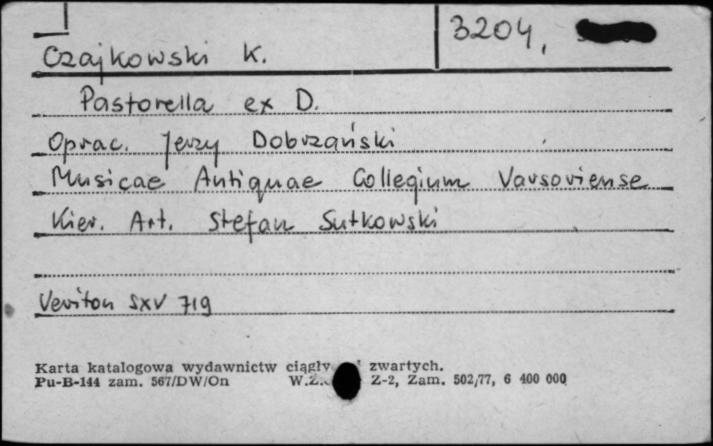 3204,
Czajkowski K.
Pastorella ex D.
Oprac. Jerzy Dobrzański
Musicae Antiquae Collegium Varsoviense
Kier. Art. Stefan Sutkowski
Veriton SXV 719
Karta katalogowa wydawnictw ciągły zwartych.
Pu-B-144 zam. 567/DW/On W.Z. Z-2, Zam. 502/77, 6 400 000